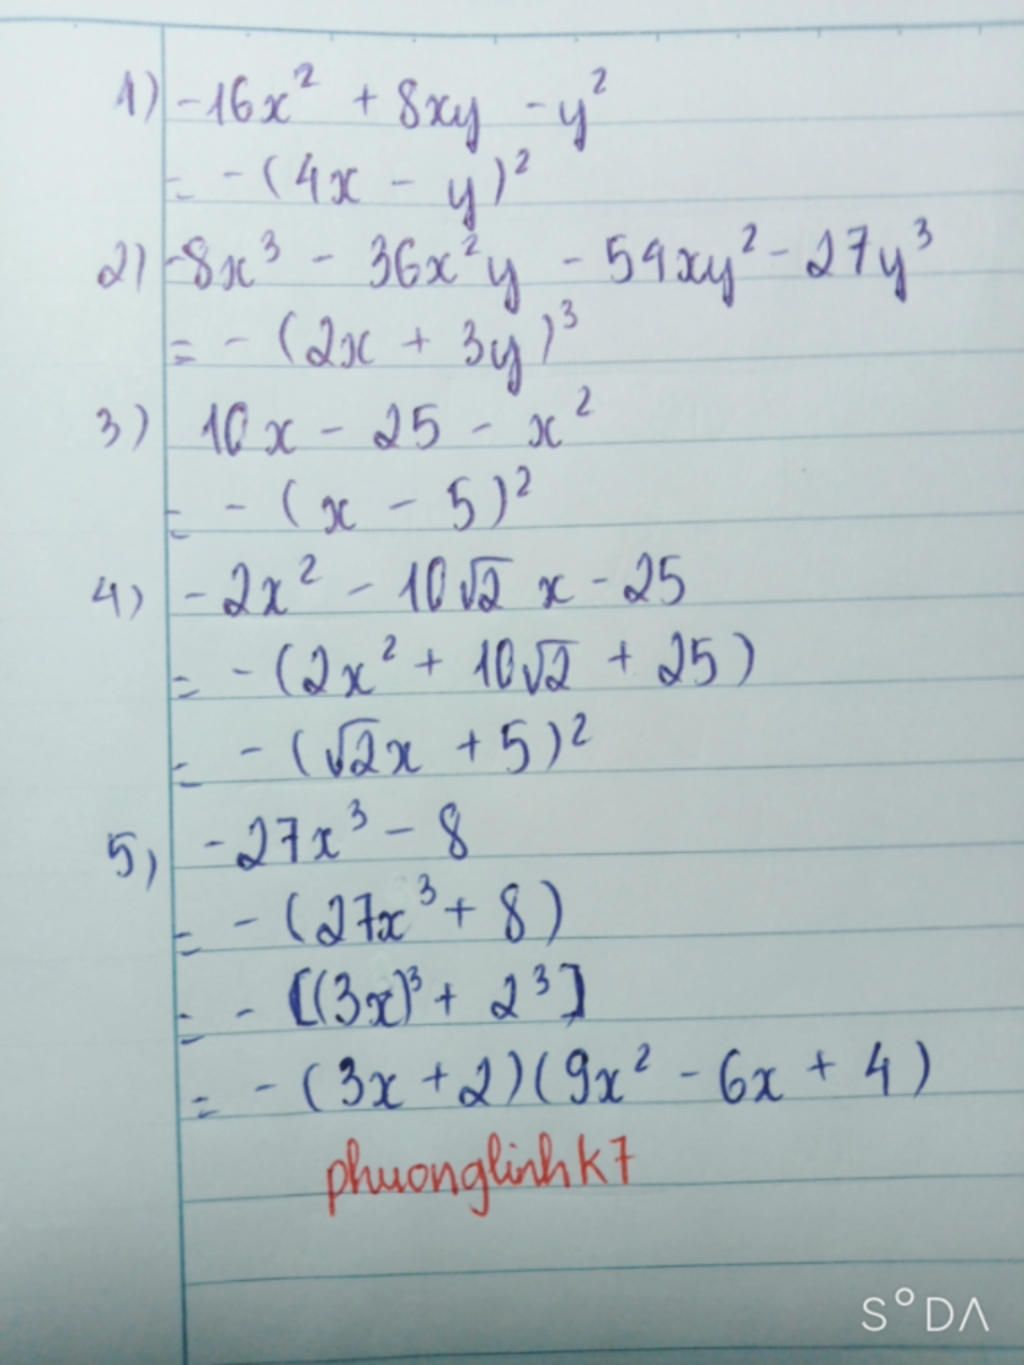 1) -16x² + 8xy - y²
= -(4x - y)²
2) -8x³ - 36x²y - 54xy² - 27y³
= -(2x + 3y)³
3) 10x - 25 - x²
= -(x - 5)²
4) -2x² - 10√2 x - 25
= -(2x² + 10√2 + 25)
= -(√2x + 5)²
5) -27x³ - 8
= -(27x³ + 8)
= -[(3x)³ + 2³]
= -(3x + 2)(9x² - 6x + 4)
phuonglinhk7
SODA